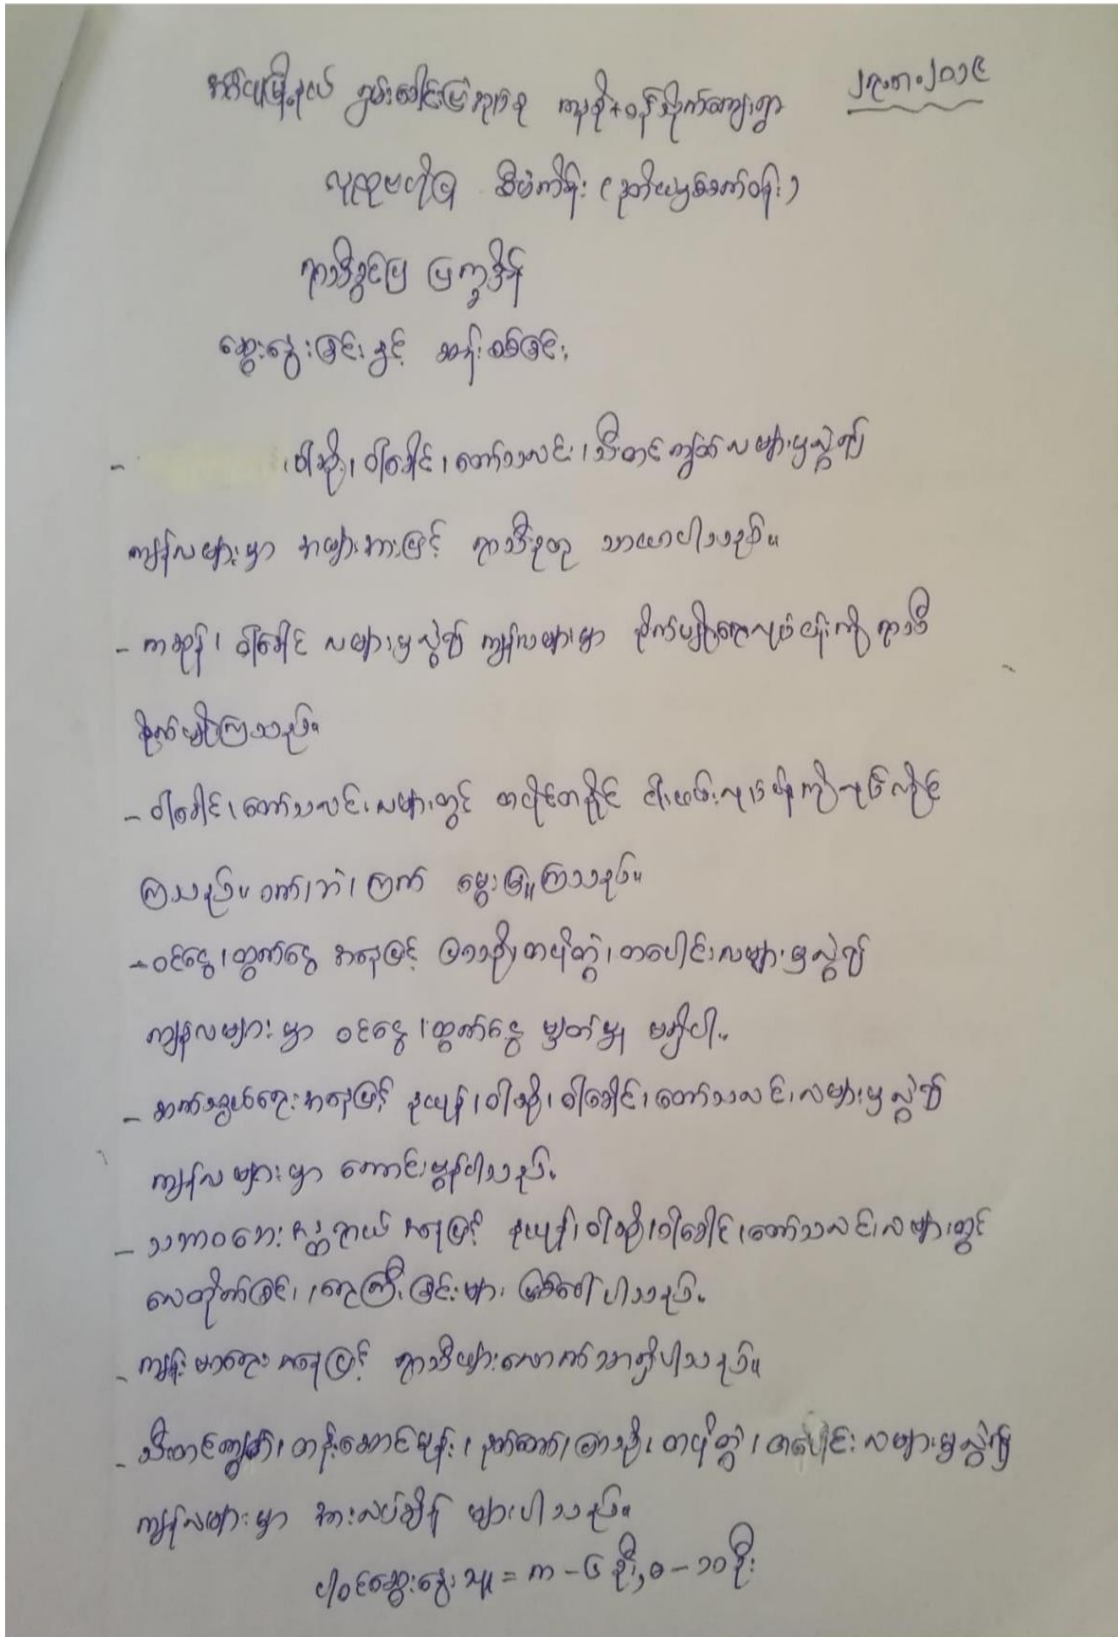 ၂၉.၈.၂၀၁၉
မြို့နယ် ကျေးရွာ
လူထုဗဟိုပြု စီမံကိန်း (ဒုတိယနှစ်ဝန်း)
ရာသီခွင်ပြ ပြက္ခဒိန်
ဆွေးနွေးခြင်းနှင့် ဆန်းစစ်ခြင်း
- ၊ဝါဆို၊ ဝါခေါင်၊ တော်သလင်း၊ သီတင်းကျွတ်လများမှလွဲ၍
ကျန်လများမှာ အများအားဖြင့် ရာသီဥတု သာယာပါသည်။
- ကဆုန်၊ ဝါခေါင် လများမှလွဲ၍ ကျန်လများမှာ စိုက်ပျိုးရေးလုပ်ငန်းကို ရာသီ
စိုက်ပျိုးကြသည်။
- ဝါခေါင်၊ တော်သလင်းလများတွင် တပိုင်တနိုင် ငါးဖမ်းလုပ်ငန်းကိုလုပ်ကိုင်
ကြသည်။ ဝက်၊ဘဲ၊ကြက် မွေးမြူကြသည်။
- ဝင်ငွေ၊ ထွက်ငွေ အနေဖြင့် ပြာသို၊ တပို့တွဲ၊ တပေါင်းလများမှလွဲ၍
ကျန်လများမှာ ဝင်ငွေ၊ ထွက်ငွေ မျှတမှု မရှိပါ။
- ဆက်သွယ်ရေးအနေဖြင့် နယုန်၊ ဝါဆို၊ ဝါခေါင်၊ တော်သလင်းလများမှလွဲ၍
ကျန်လများမှာ ကောင်းမွန်ပါသည်။
- သဘာဝဘေးအန္တရာယ် အနေဖြင့် နယုန်၊ ဝါဆို၊ ဝါခေါင်၊ တော်သလင်းလများတွင်
လေတိုက်ခြင်း၊ ရေကြီးခြင်းများ ဖြစ်ပေါ်ပါသည်။
- ကျန်းမာရေး အနေဖြင့် ရာသီဖျားလောက်သာရှိပါသည်။
- သီတင်းကျွတ်၊ တန်ဆောင်မုန်း၊ နတ်တော်၊ ပြာသို၊ တပို့တွဲ၊ တပေါင်းလများမှလွဲ၍
ကျန်လများမှာ အားလပ်ချိန် များပါသည်။
ပါဝင်ဆွေးနွေးသူ = က - ၆ ဦး, မ - ၁၀ ဦး